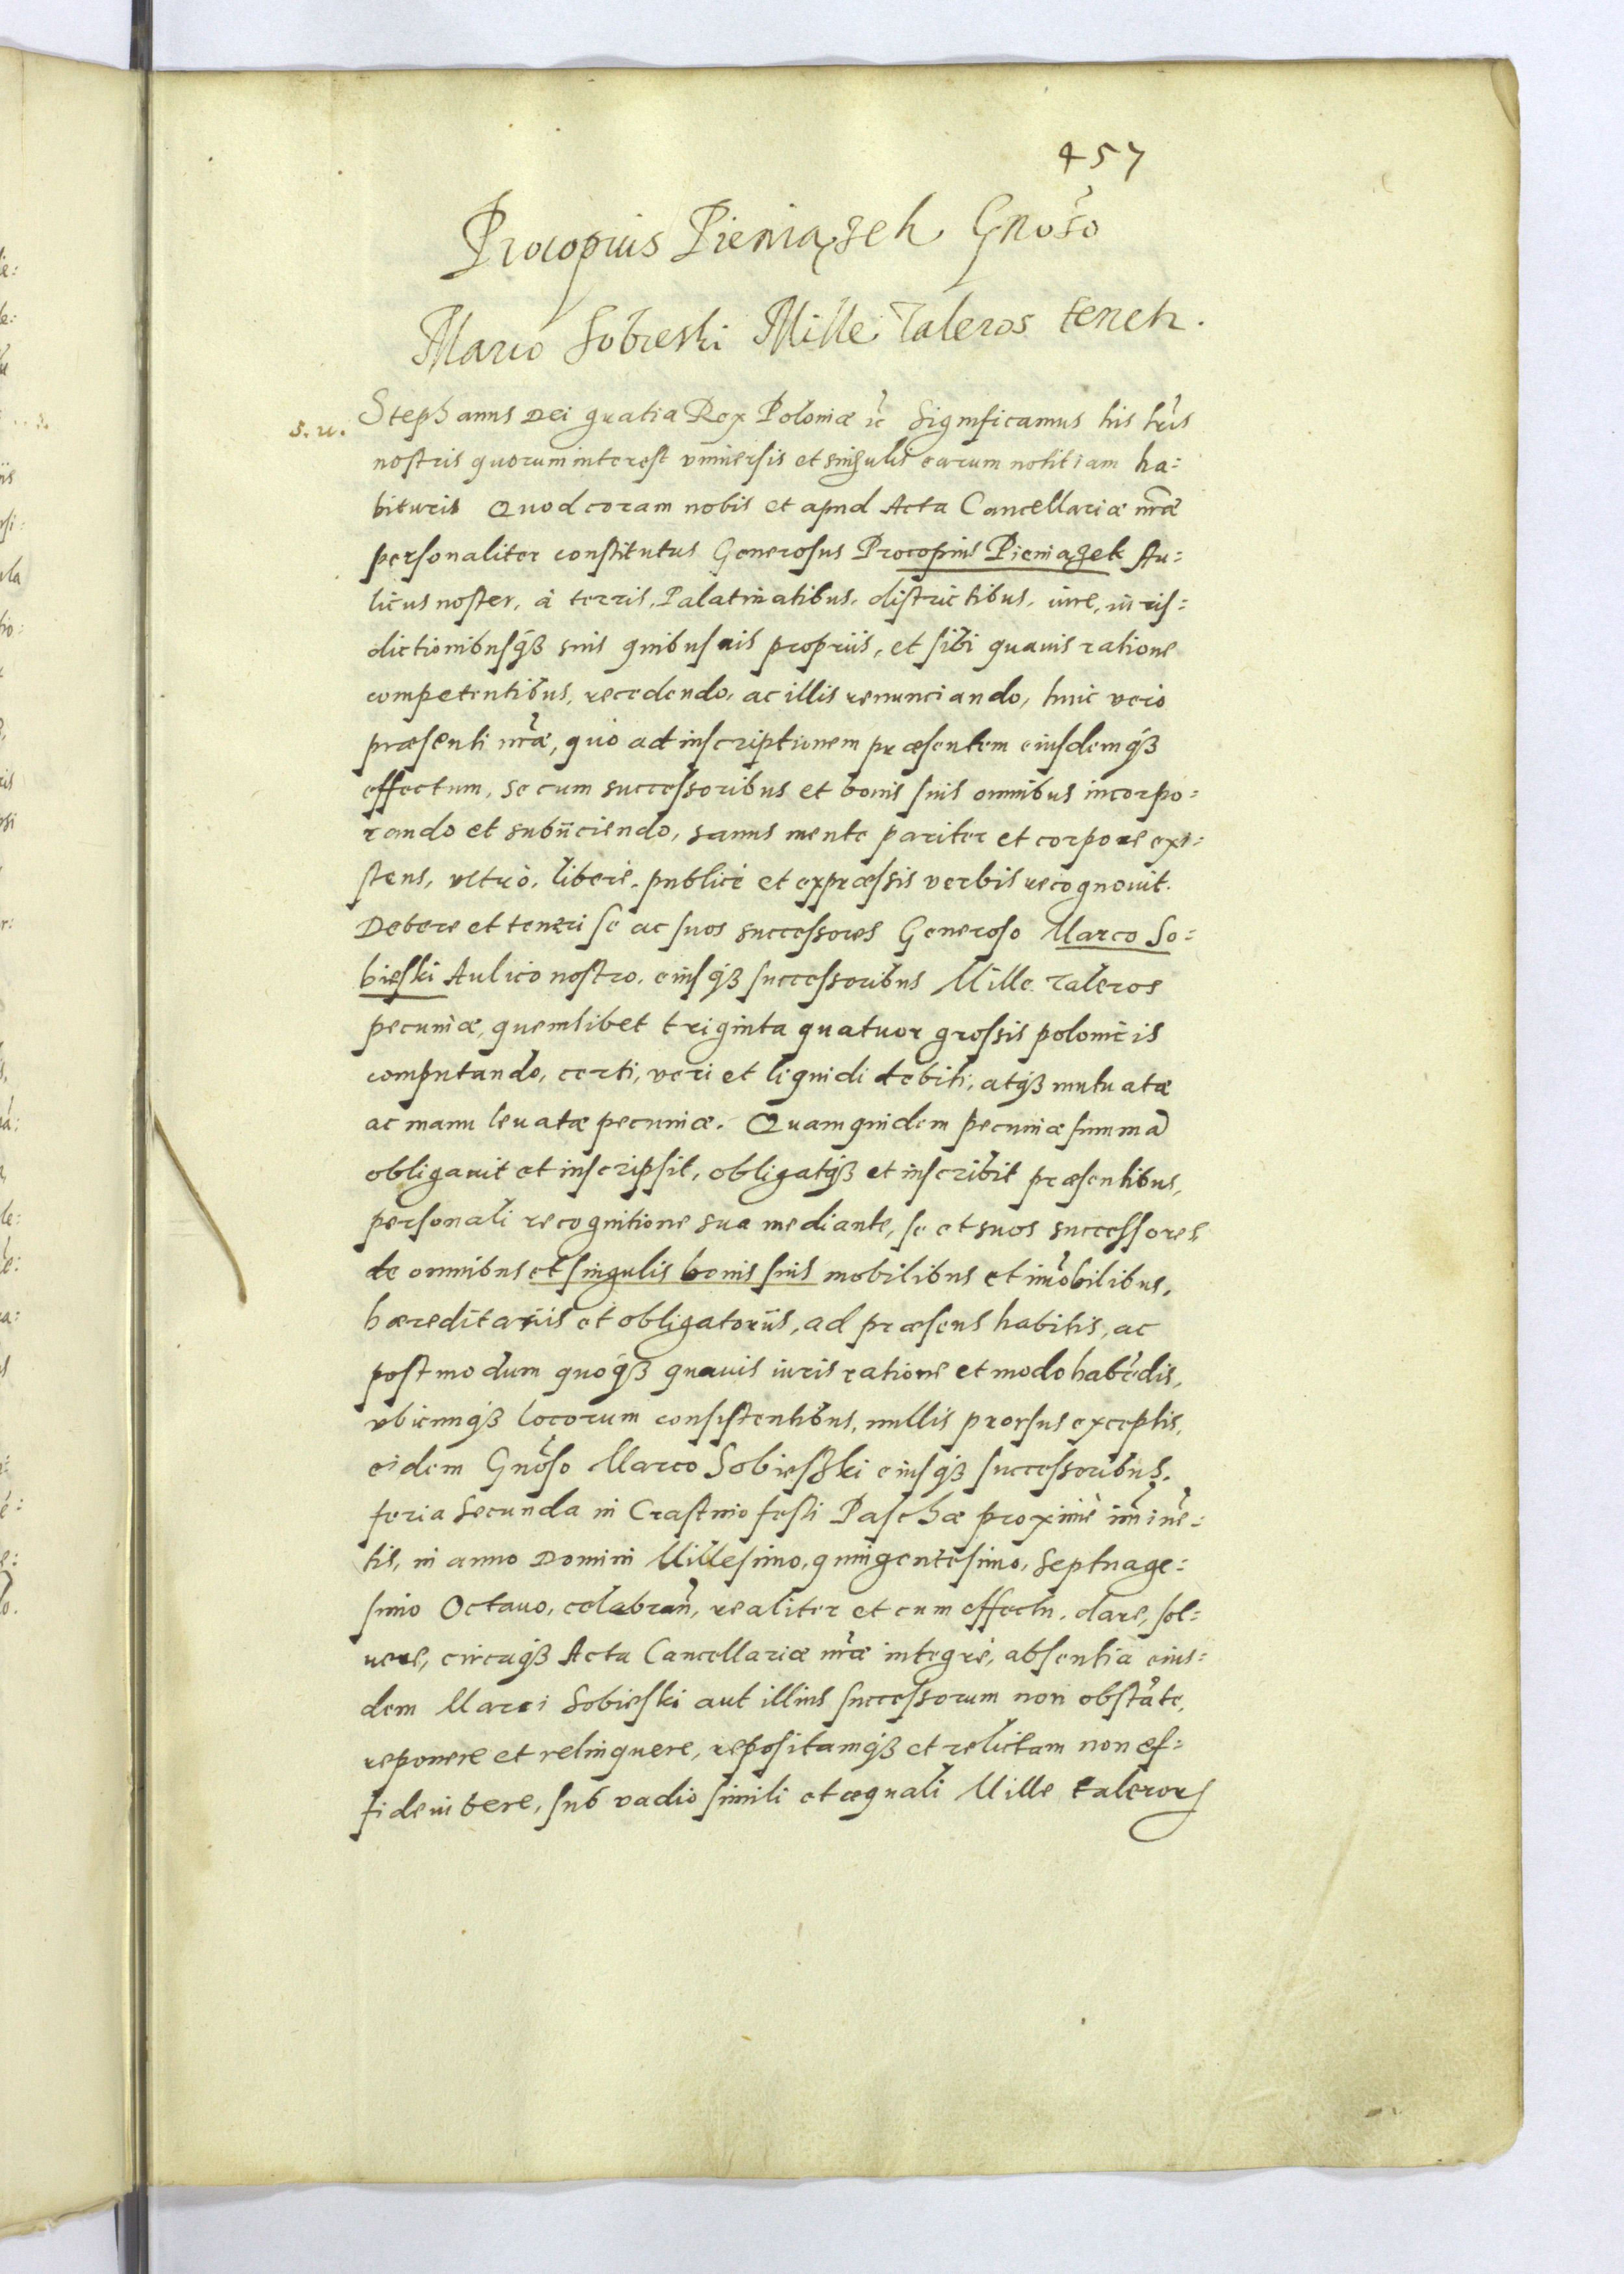 457
Procopius Pieniązek Gnõso
Marco Sobieski Mille Taleros tenetr.
s. u.
Stephanus Dei gratia Rex Poloniæ ĩc Significamus his lr̃is
nostris quorum interest vniuersis et singulis earum notitiam ha:
bituris Quod coram nobis et apud Acta Cancellariæ nr̃æ
personaliter constitutus Generosus Procopius Pieniązek Au:
licus noster, à terris, Palatinatibus, districtibus, iure, iuris:
dictionibusq́ß suis quibusuis proprijs, et sibi quauis ratione
competentibus, recedendo, ac illis renunciando, huic verò
præsenti nr̃æ, quò ad inscriptionem præsentem eiusdemq́ß
effectum, se cum successoribus et bonis suis omnibus incorpo:
rando et subijciendo, sanus mente pariter et corpore exi:
stens, vltrò, liberè, publicè et expræssis verbis recognouit.
Debere et teneri se ac suos successores Generoso Marco So:
bieski Aulico nostro, eiusq́ß successoribus Mille Taleros
pecuniæ, quemlibet triginta quatuor grossis polonicis
computando, certi, veri et liquidi debiti, atq́ß mutuatæ
ac manu leuatæ pecuniæ. Quam quidem pecuniæ summã
obligauit et inscripsit, obligatq́ß et inscribit præsentibus,
personali recognitione sua mediante, se et suos successores,
de omnibus et singulis bonis suis mobilibus et im̃obilibus,
hæreditarijs et obligatorijs, ad præsens habitis, ac
postmodum quoq́ß quauis iuris ratione et modo habẽdis,
vbicunq́ß locorum consistentibus, nullis prorsus exceptis,
eidem Gnõso Marco Sobieszki eiusq́ß successoribus,
feria Secunda in Crastino festi Paschæ proximè im̃inẽ:
tis, in anno Domini Millesimo, quingentesimo, Septuage:
simo Octauo, celebrañ, realiter et cum effectu, dare, sol:
uere, circaq́ß Acta Cancellariæ nr̃æ integrè, absentia eius:
dem Marci Sobieski aut illius successorum non obstãte,
reponere et relinquere, repositamq́ß et relictam non ef:
fidemi bere, sub vadio simili et æquali Mille talerorꝭ